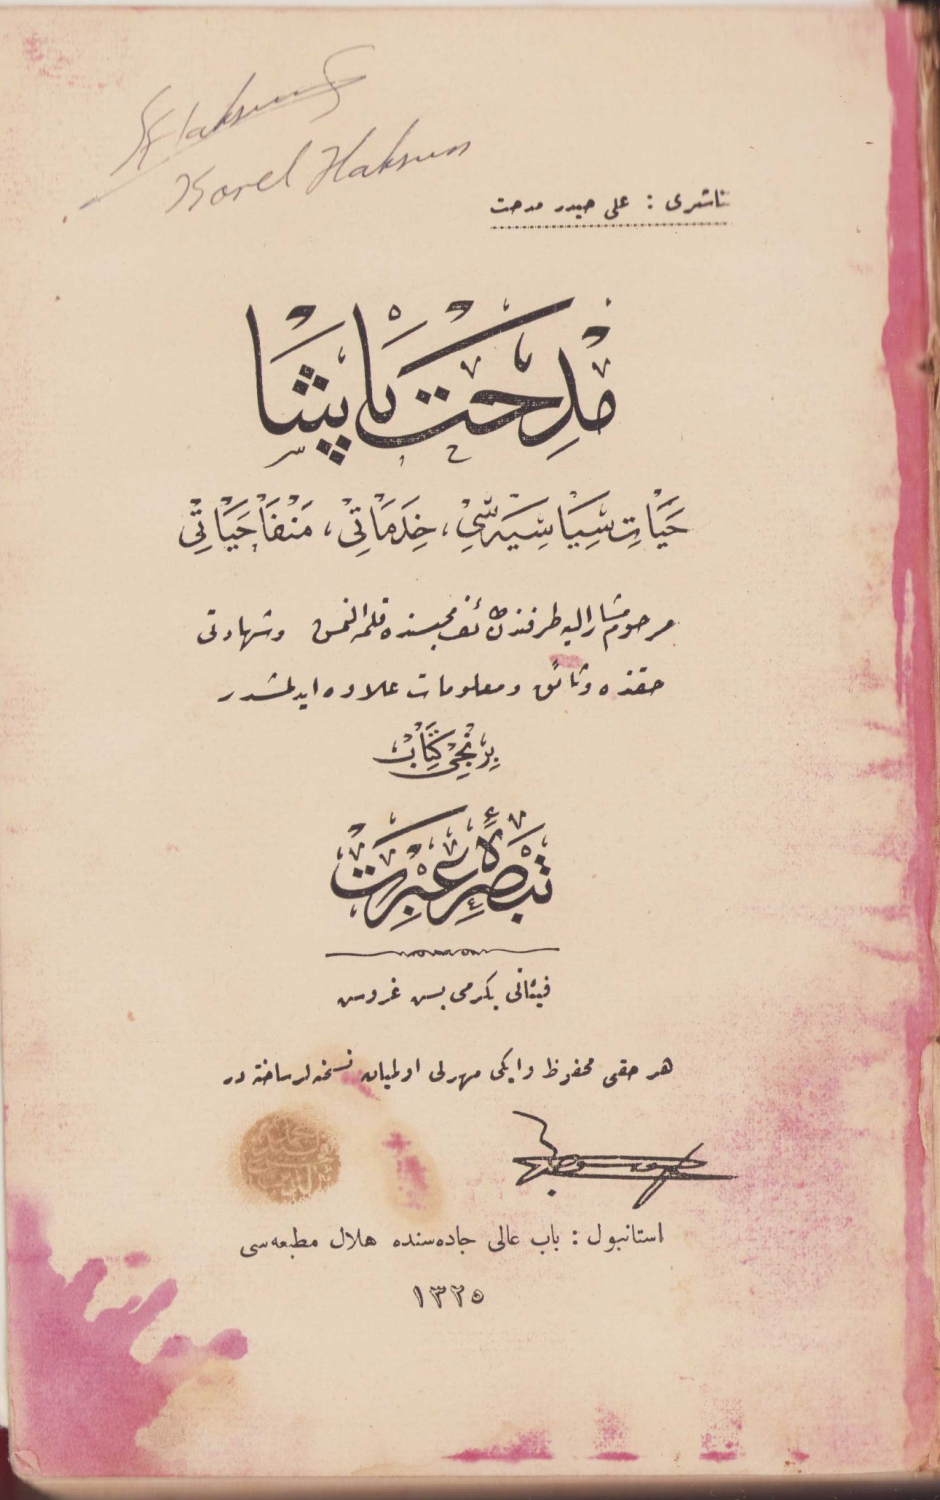 Haksun
Korel Haksun
ناشری : علی حیدر مدحت
مدحت پاشا
حیات سیاسیه‌سی، خدماتی، منفا حیاتی
مرحوم مشارالیه طرفندن طائف محبسنده قلمه النمش وشهادتی
حقنده وثائق ومعلومات علاوه ایدلمشدر
برنجی کتاب
تبصرهٔ عبرت
فیئاتی یکرمی بش غروش
هر حقی محفوظ وایکی مهرلی اولمیان نسخه‌لر ساخته در
استانبول : باب عالی جاده‌سنده هلال مطبعه‌سی
١٣٢٥